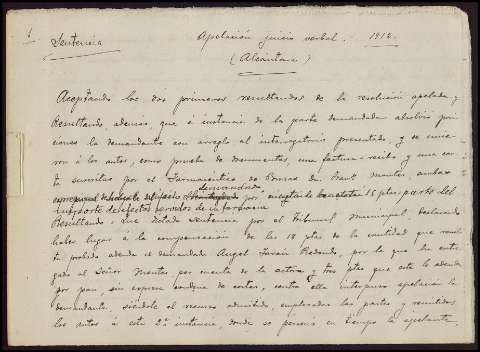 1
Sentencia
Apelación juicio verbal. 1912.
(Alcántara)
Aceptando los dos primeros resultandos de la resolución apelada, y
Resultando, además, que á instancia de la parte demandada absolvió posi-
ciones la demandante con arreglo al interrogatorio presentado, y se unie-
ron á los autos, como prueba de documentos, una factura-recibo y una car-
ta suscritas por el Farmacéutico de Brozas Dn. ambas
demandada
por 15 ptas
importe de efectos
Resultando: Que dictada sentencia por el Tribunal municipal, declarando
haber lugar á la compensación de las 15 ptas de la cantidad que resul-
ta probado adeuda el demandado Angel Redondo, por lo que ha entre-
gado al Señor por cuenta de la actora y tres ptas que este le adeuda
por pan, sin expresa condena de costas, contra ella interpuso apelación la
demandante, siéndole el recurso admitido, emplazadas las partes y remitidos
los autos á esta 2ª instancia, donde se persona en tiempo la apelante,